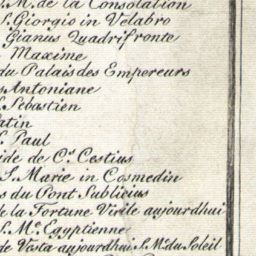 S. M. de la Consolation
S. Giorgio in Velabro
Gianus Quadrifronte
Maxime
du Palais des Empereurs
Antoniane
S. Sebastien
atin
S. Paul
ide de C.s Cestius
S. Marie in Cosmedin
s du Pont Sublicius
de la Fortune Virile aujourdhui
S. M.e Egyptienne
de Vesta aujourdhui S. M.e du Soleil